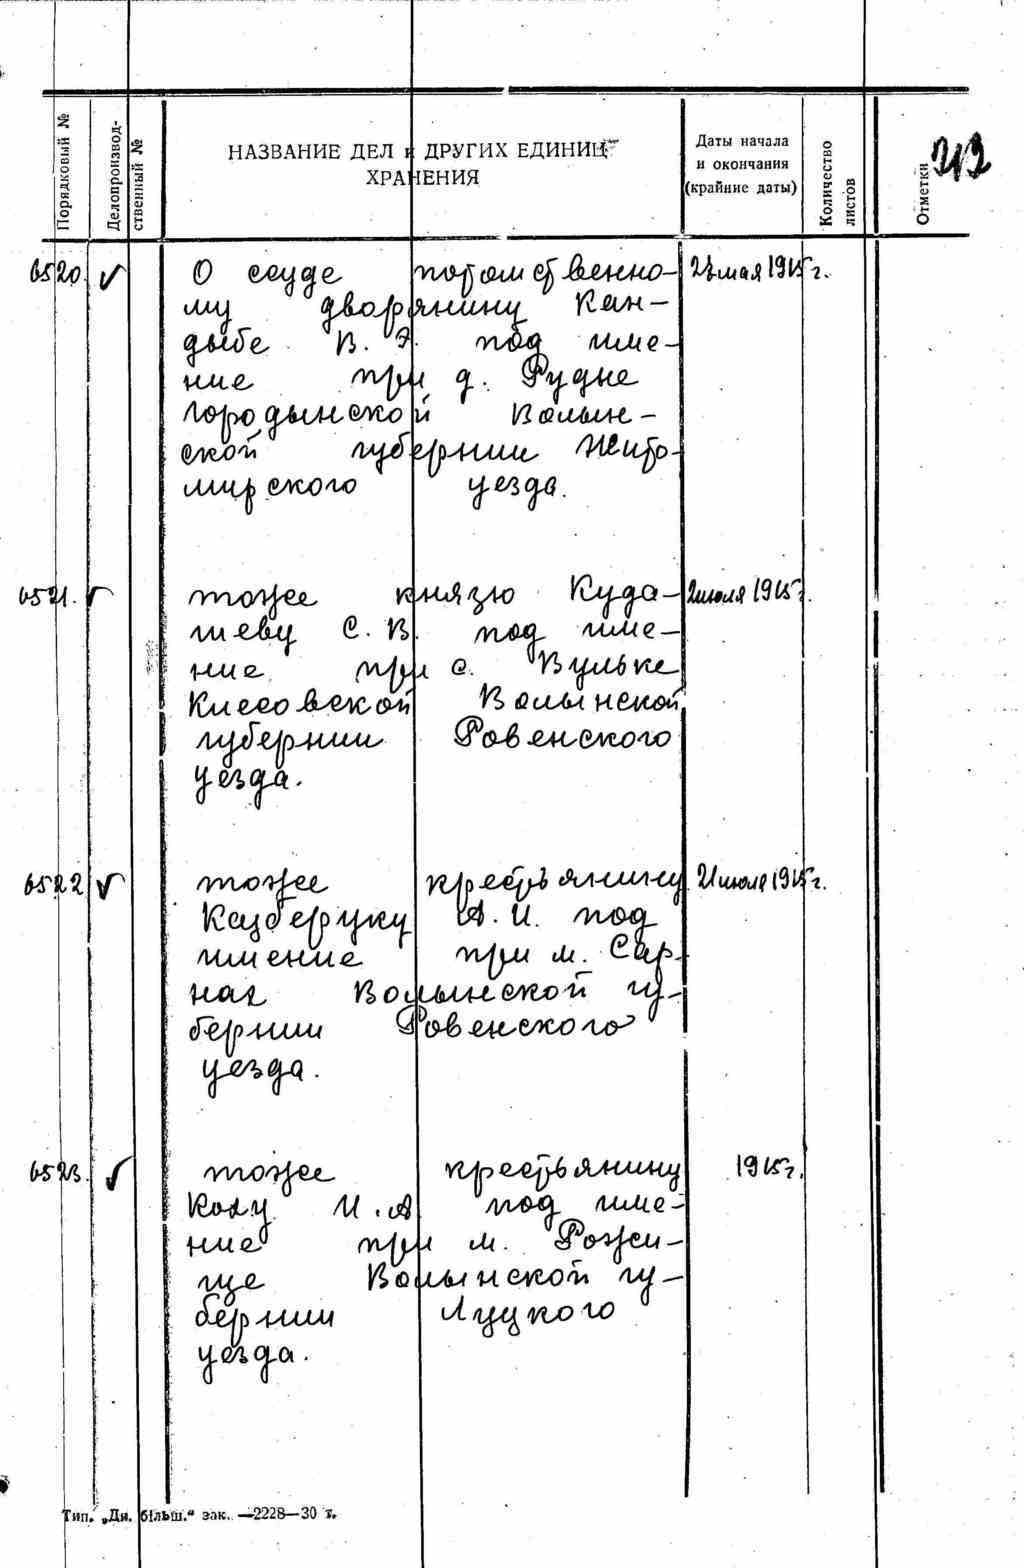 Порядковый №
Делопроизвод-
ственный №
НАЗВАНИЕ ДЕЛ и ДРУГИХ ЕДИНИЦ
ХРАНЕНИЯ
Даты начала
и окончания
(крайние даты)
Количество
листов
Отметки
6520. О ссуде потомственно- мая 1915 г.
му дворянину Кан-
дыбе В. Э. под име-
ние при д. Рудне
Городынской Волын-
ской губернии Жито-
мирского уезда.
6521. тоже князю Куда- 2 июля 1915 г.
шеву С. В. под име-
ние при с. Вульке
Клесовской Волынской
губернии Ровенского
уезда.
6522 тоже крестьянину 21 июля 1915 г.
А. И. под
имение при м. Сар-
нах Волынской гу-
бернии Ровенского
уезда.
6523. тоже крестьянину 1915 г.
Коху И. А. под име-
ние при м. Рожи-
ще Волынской гу-
бернии Луцкого
уезда.
Тип. „Дн. більш.“ зак. —2228—30 т.